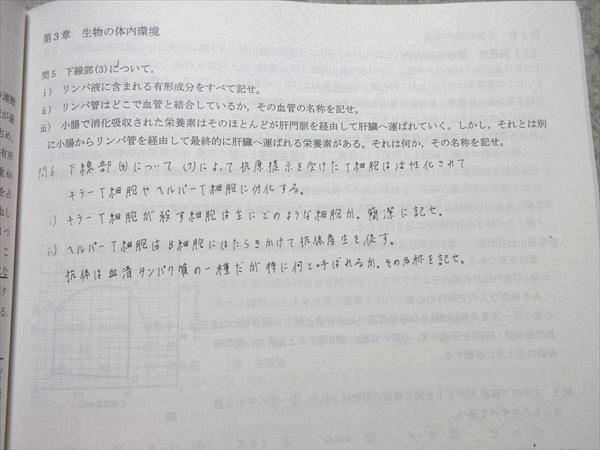 第3章 生物の体内環境
問5 下線部(3)について,
i) リンパ液に含まれる有形成分をすべて記せ。
ii) リンパ管はどこで血管と結合しているか,その血管の名称を記せ。
iii) 小腸で消化吸収された栄養素はそのほとんどが肝門脈を経由して肝臓へ運ばれていく。しかし,それとは別
に小腸からリンパ管を経由して最終的に肝臓へ運ばれる栄養素がある。それは何か,その名称を記せ。
問6 下線部(4)について (ク)によって抗原提示を受けたT細胞は活性化されて
キラーT細胞やヘルパーT細胞に分化する。
i) キラーT細胞が殺す細胞は主にどのような細胞か。簡潔に記せ。
ii) ヘルパーT細胞はB細胞にはたらきかけて抗体産生を促す。
抗体は血清タンパク質の一種だが特に何と呼ばれるか,その名称を記せ。